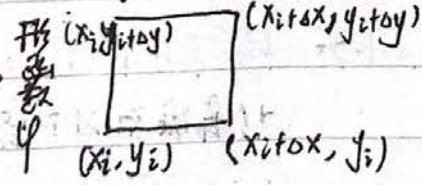 形函数φ
(xi, yi+Δy)
(xi+Δx, yi+Δy)
(xi, yi)
(xi+Δx, yi)